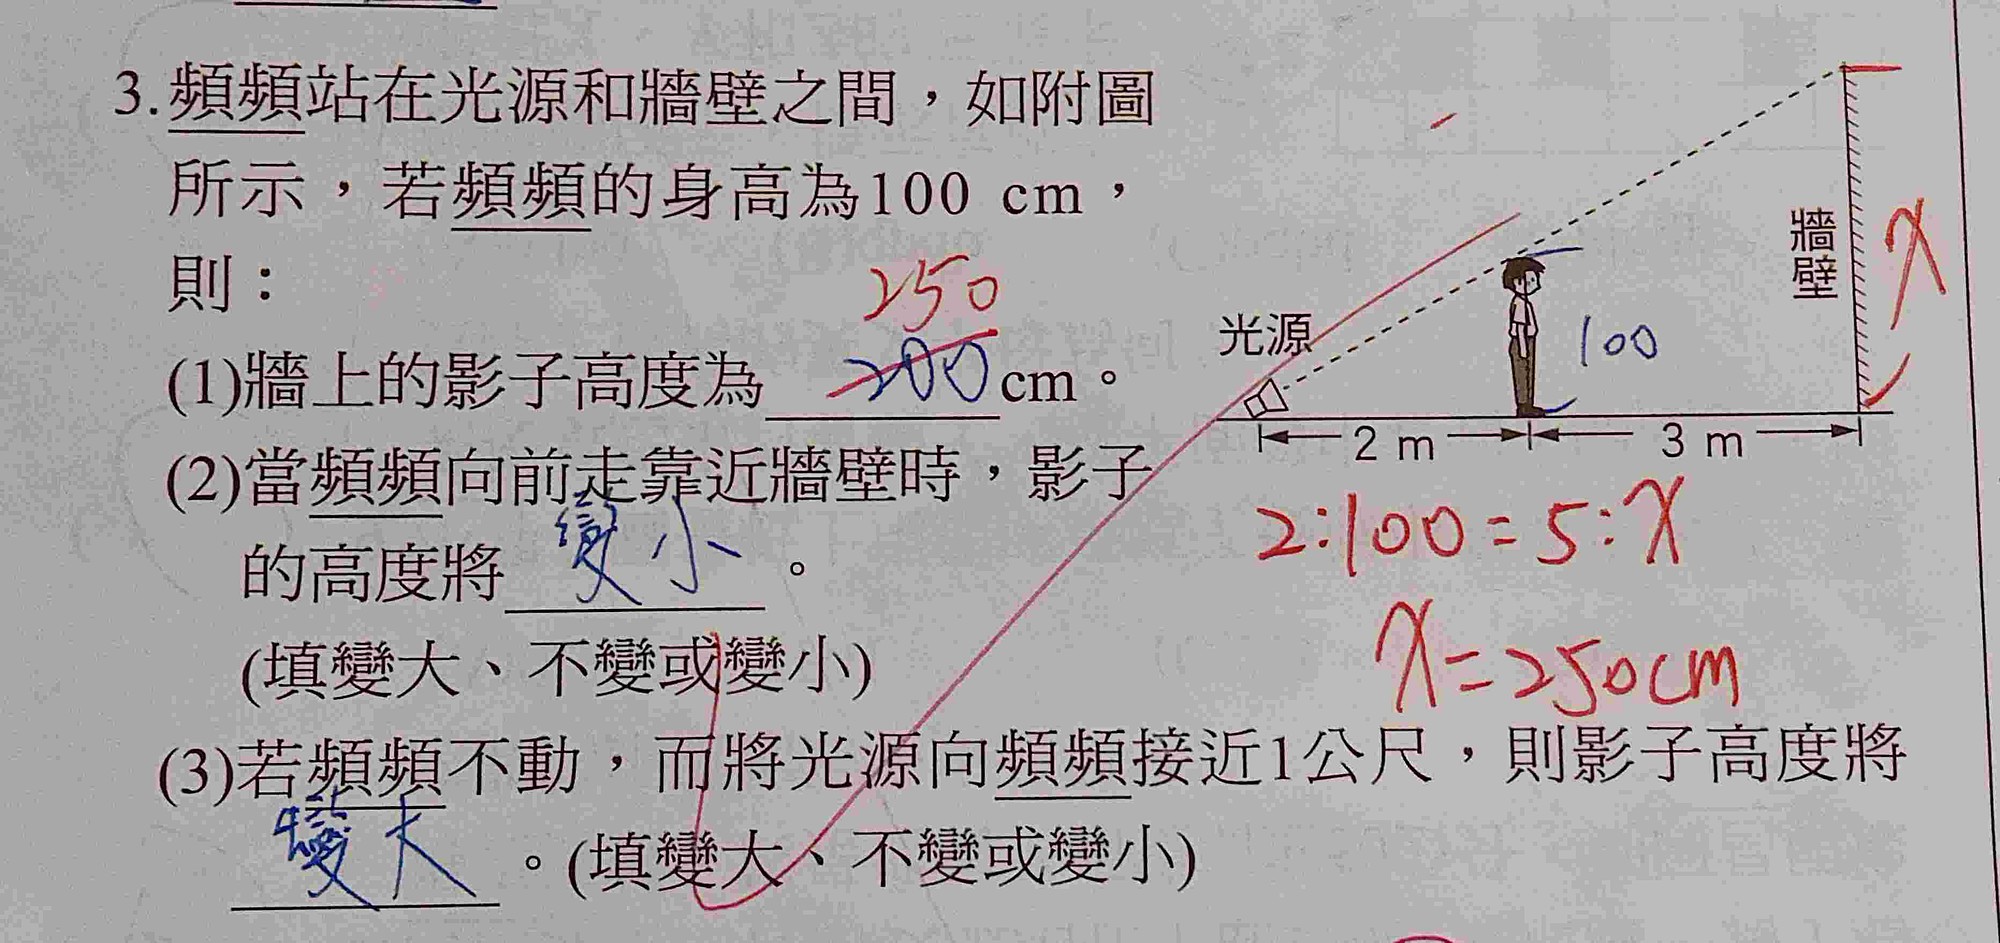 3.頻頻站在光源和牆壁之間，如附圖
所示，若頻頻的身高為100 cm，
則：
250
(1)牆上的影子高度為 200 cm。
(2)當頻頻向前走靠近牆壁時，影子
的高度將 變小 。
(填變大、不變或變小)
(3)若頻頻不動，而將光源向頻頻接近1公尺，則影子高度將
變大 。(填變大、不變或變小)
牆壁
x
光源
100
2 m
3 m
2:100=5:x
x=250cm